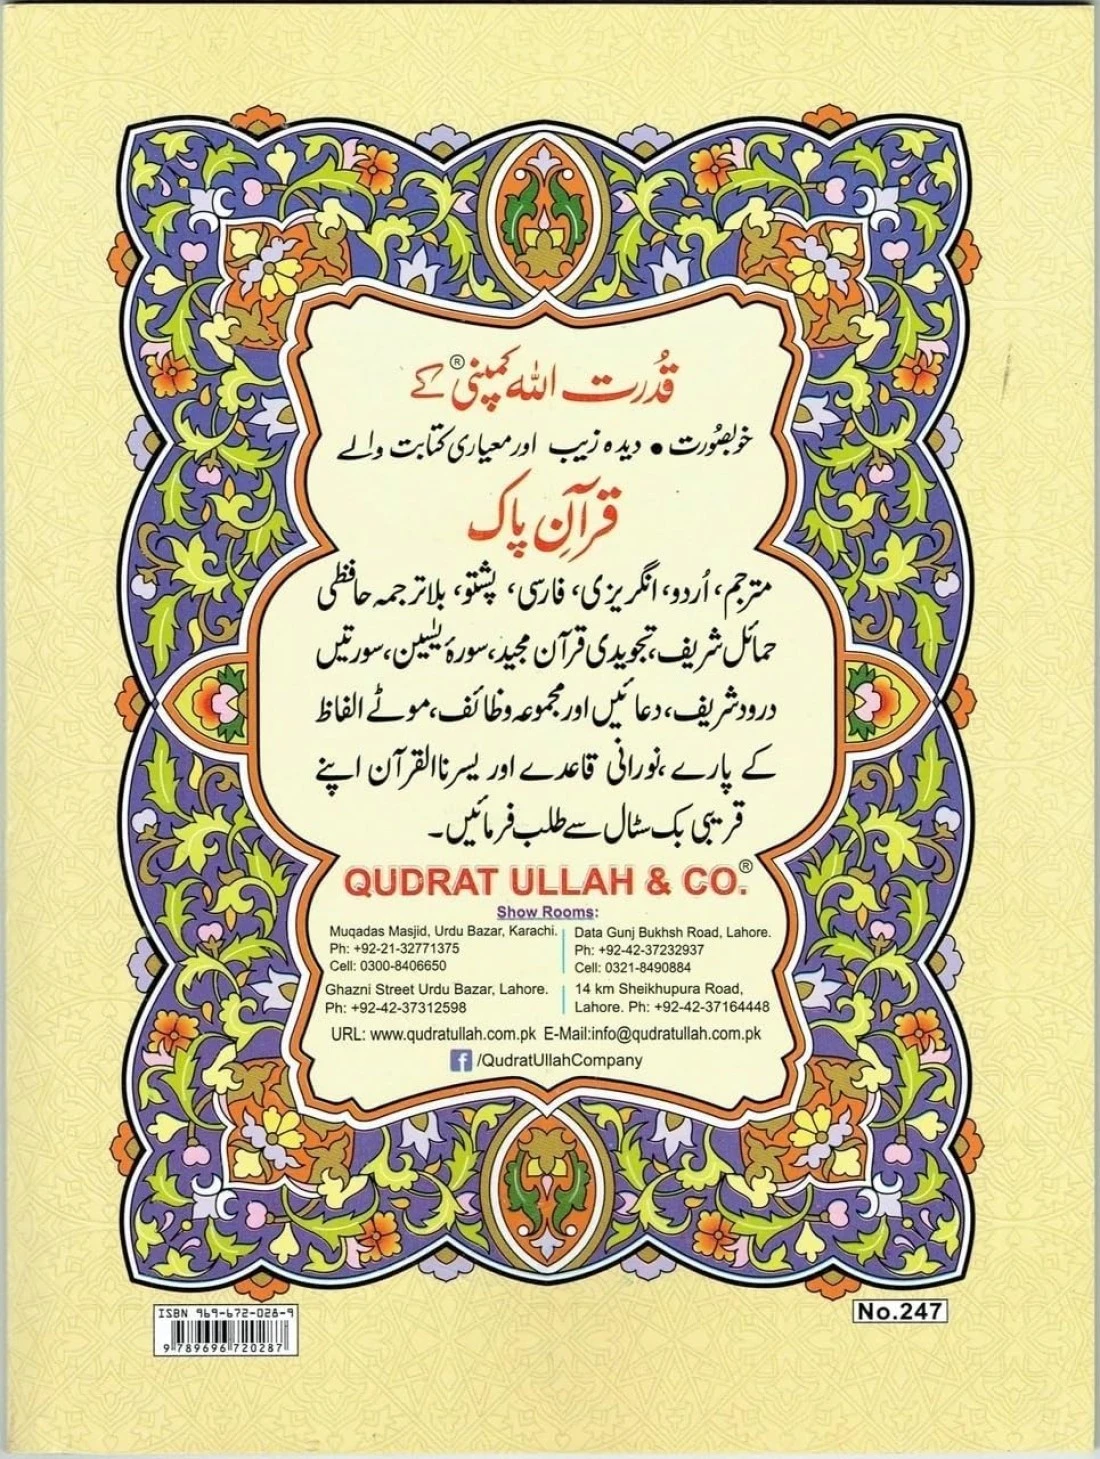 قُدرت اللہ کمپنی® کے
خوبصُورت • دیدہ زیب اور معیاری کتابت والے
قرآنِ پاک
مترجم، اُردو، انگریزی، فارسی، پشتو، بلاترجمہ حافظی
حمائل شریف، تجویدی قرآن مجید، سورۂ یٰسین، سورتیں
درود شریف، دعائیں اور مجموعہ وظائف، موٹے الفاظ
کے پارے، نورانی قاعدے اور یسرنا القرآن اپنے
قریبی بک سٹال سے طلب فرمائیں۔
QUDRAT ULLAH & CO.®
Show Rooms:
Muqadas Masjid, Urdu Bazar, Karachi.
Ph: +92-21-32771375
Cell: 0300-8406650
Data Gunj Bukhsh Road, Lahore.
Ph: +92-42-37232937
Cell: 0321-8490884
Ghazni Street Urdu Bazar, Lahore.
Ph: +92-42-37312598
14 km Sheikhupura Road,
Lahore. Ph: +92-42-37164448
URL: www.qudratullah.com.pk E-Mail:info@qudratullah.com.pk
f /QudratUllahCompany
ISBN 969-672-028-9
9 789696 720287
No.247